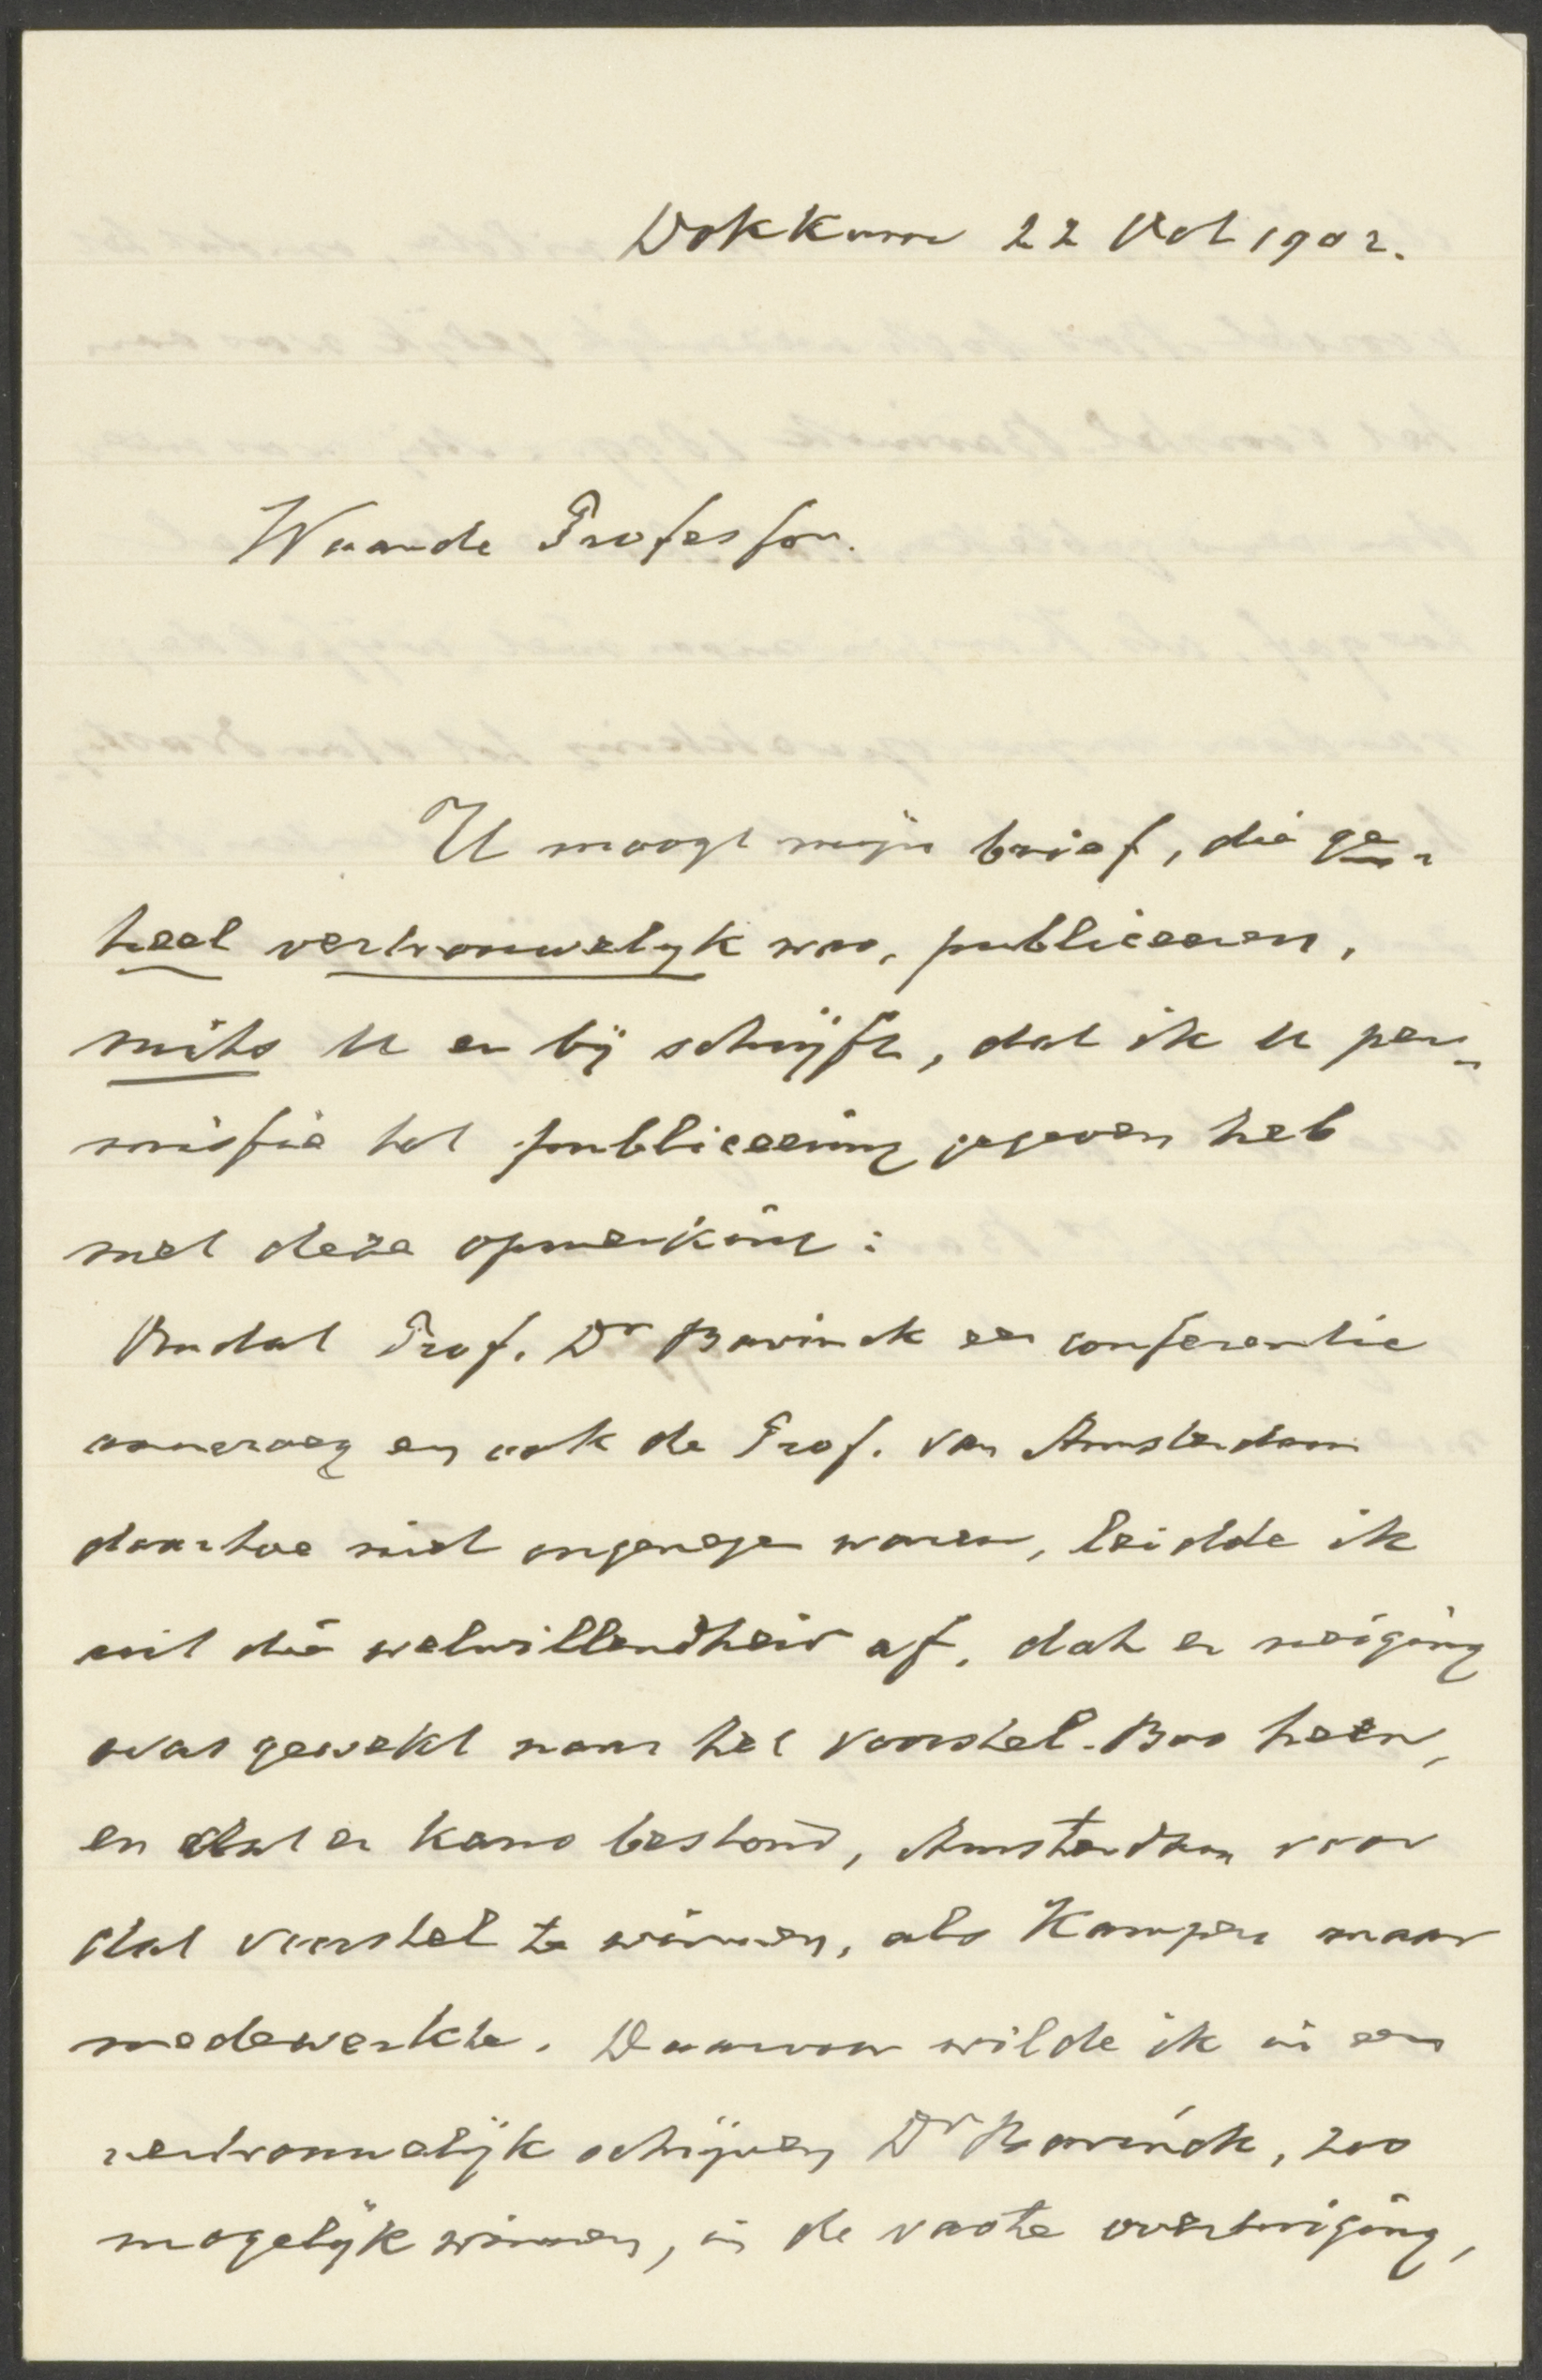 Dokkum 22 Oct 1902.
Waarde Professor.
U moogt mijn brief, die ge-
heel vertrouwelijk was, publiceeren,
mits U er bij schrijft, dat ik U per-
missie tot publiceering gegeven heb
met deze opmerking:
Omdat Prof. Dr Bavinck een conferentie
aanvroeg en ook de Prof. van Amsterdam
daartoe niet ongenegen waren, leidde ik
uit die welwillendheid af, dat er neiging
was gewekt naar het voorstel-Bos heen,
en dat er kans bestond, Amsterdam voor
dat voorstel te winnen, als Kampen maar
medewerkte. Daarvoor wilde ik in een
vertrouwelijk schrijven Dr Bavinck, zoo
mogelijk winnen, in de vaste overtuiging,